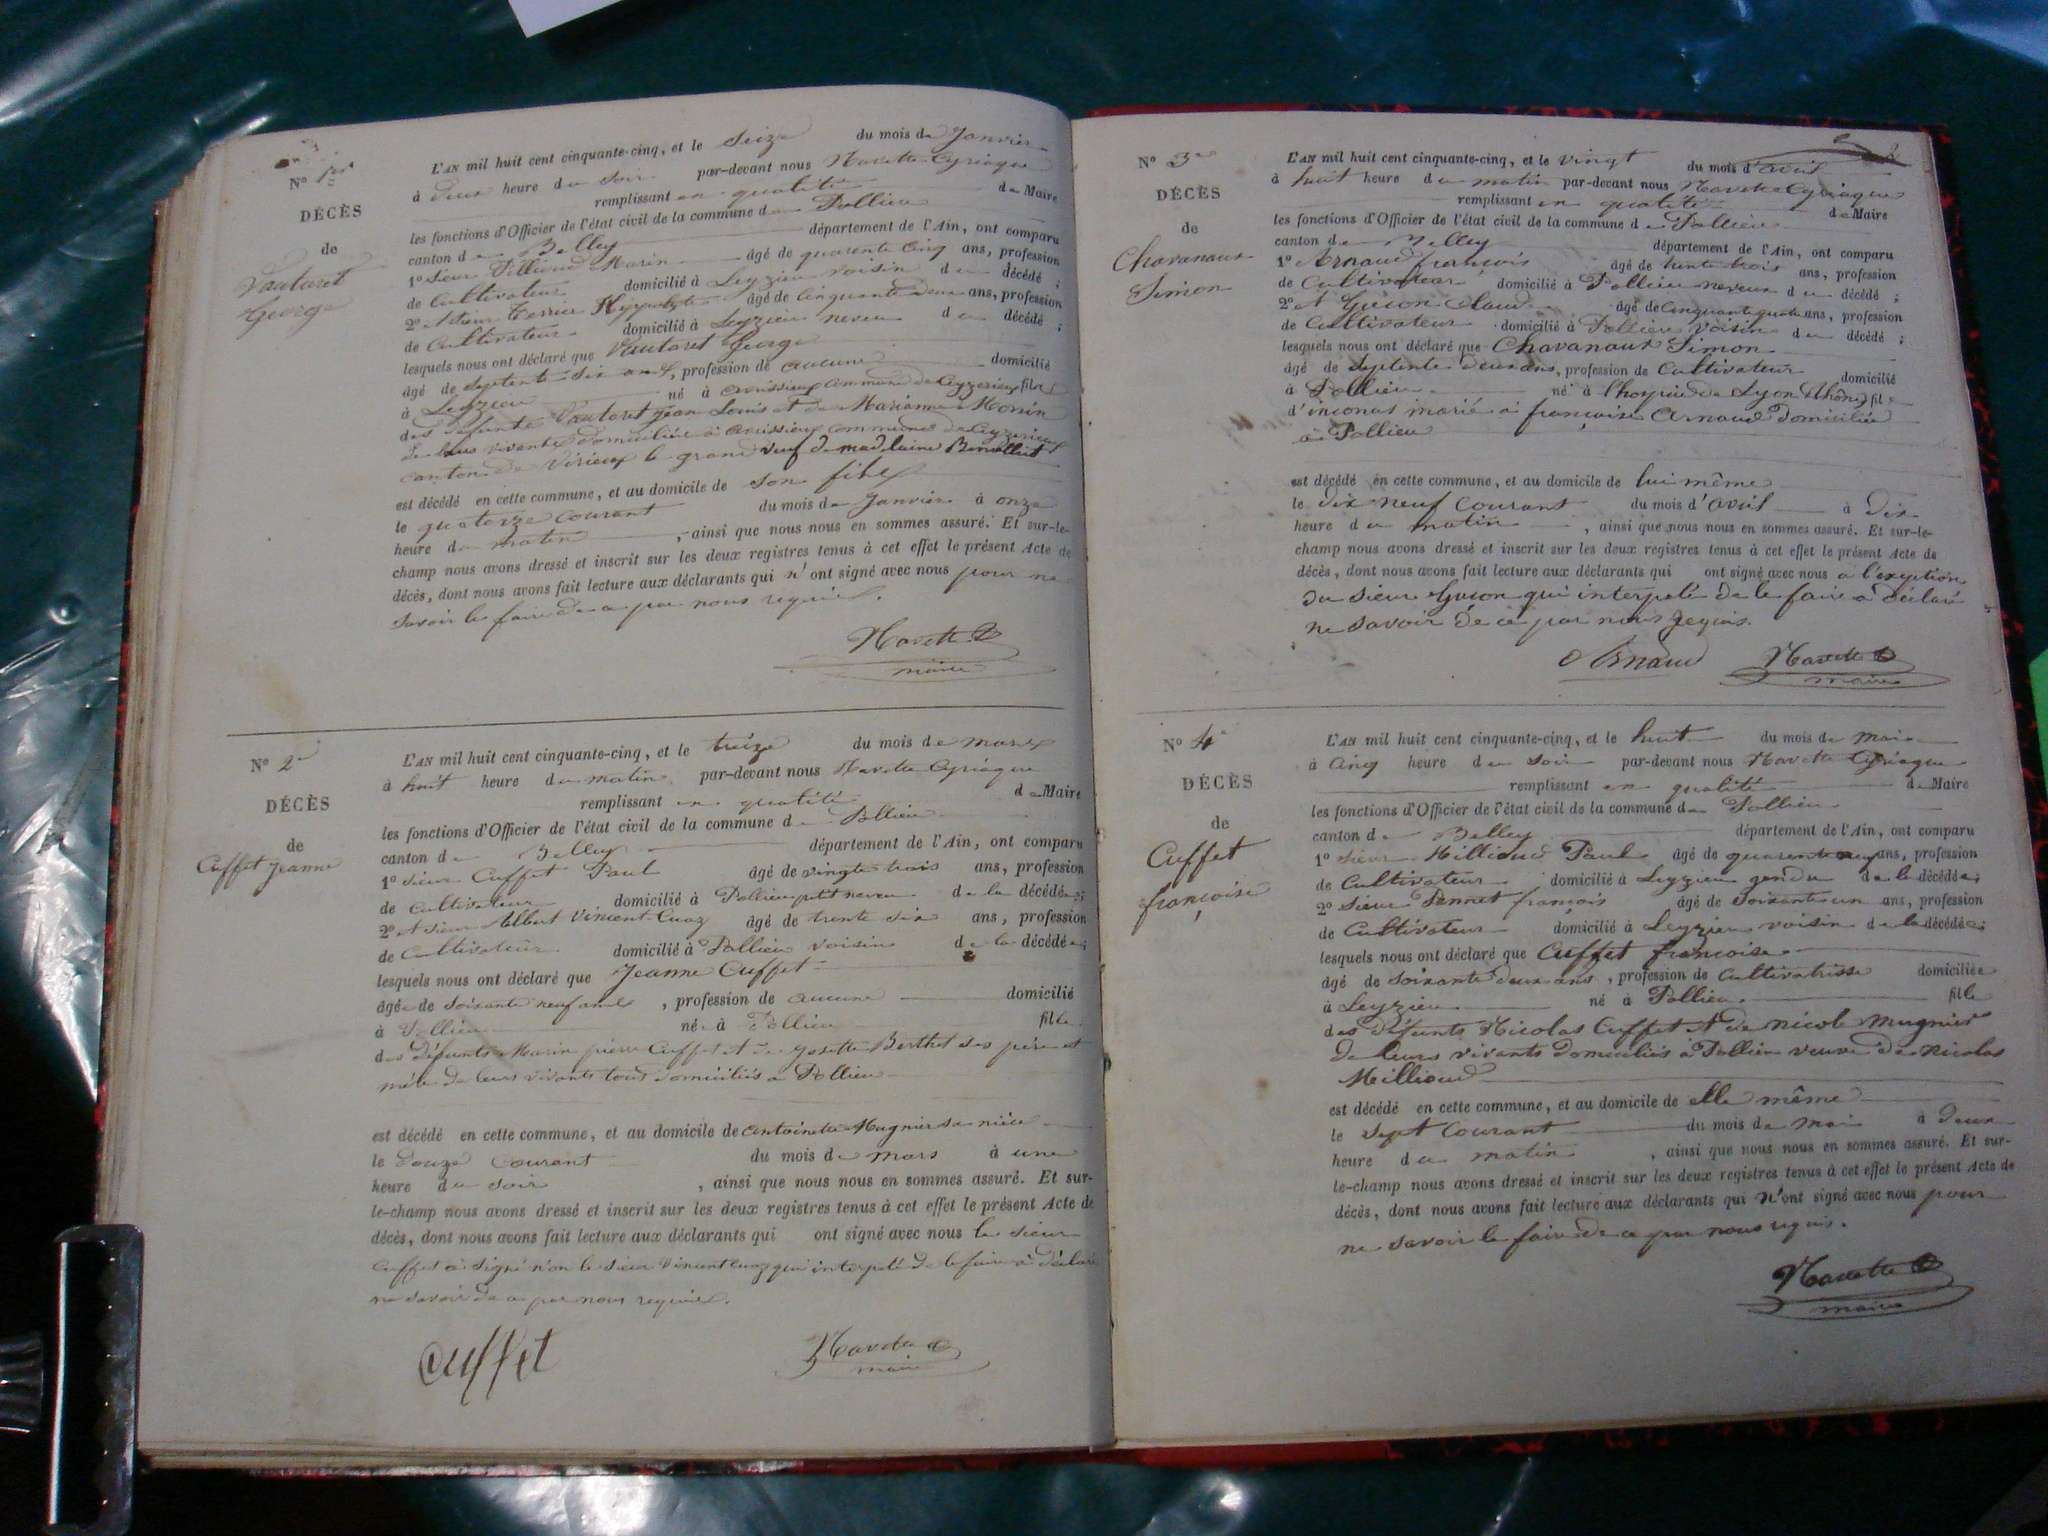 No 1er
DÉCÈS
de
Vautaret
George
L'AN mil huit cent cinquante-cinq, et le seize du mois de Janvier
à deux heure du soir par-devant nous Navette Cyriaque
remplissant en qualité de Maire
les fonctions d'Officier de l'état civil de la commune de Pollieu
canton de Belley département de l'Ain, ont comparu
1o sieur Marin âgé de quarente cinq ans, profession
de Cultivateur domicilié à Leyzieu voisin du décédé ;
2o et sieur Terrier Hyppolyte âgé de Cinquante deux ans, profession
de Cultivateur domicilié à Leyzieu neveu du décédé ;
lesquels nous ont déclaré que Vautaret George
âgé de septente six ans, profession de aucune domicilié
à Leyzieu né à commune de Ceyzerieux fils
des défunts Vautaret jean Louis et de Marianne Monin
de leurs vivants domiciliés à commune de Ceyzerieux
canton de Virieux le grand veuf de madelaine
est décédé en cette commune, et au domicile de son fils
le quatorze courant du mois de Janvier à onze
heure du matin, ainsi que nous nous en sommes assuré. Et sur-le-
champ nous avons dressé et inscrit sur les deux registres tenus à cet effet le présent Acte de
décès, dont nous avons fait lecture aux déclarants qui n'ont signé avec nous pour ne
savoir le faire de ce par nous requis.
Navette C
maire
No 2e
DÉCÈS
de
Cuffet Jeanne
L'AN mil huit cent cinquante-cinq, et le treize du mois de mars
à huit heure du matin par-devant nous Navette Cyriaque
remplissant en qualité de Maire
les fonctions d'Officier de l'état civil de la commune de Pollieu
canton de Belley département de l'Ain, ont comparu
1o sieur Cuffet Paul âgé de vingte trois ans, profession
de Cultivateur domicilié à Pollieu petit neveu de la décédée ;
2o et sieur Albert Vincent Cuaz âgé de trente six ans, profession
de Cultivateur domicilié à Pollieu voisin de la décédée ;
lesquels nous ont déclaré que Jeanne Cuffet
âgée de soixante neuf ans, profession de aucune domicilié
à Pollieu née à Pollieu fille
des défunts Marin pierre Cuffet et de Josette Berthet ses père et
mère de leurs vivants tous domiciliés à Pollieu
est décédé en cette commune, et au domicile de antoinette Mugnier sa nièce
le douze courant du mois de mars à une
heure du soir, ainsi que nous nous en sommes assuré. Et sur-
le-champ nous avons dressé et inscrit sur les deux registres tenus à cet effet le présent Acte de
décès, dont nous avons fait lecture aux déclarants qui ont signé avec nous le sieur
Cuffet a signé non le sieur Vincent Cuaz qui interpelé de le faire a déclaré
ne savoir de ce par nous requis.
Cuffet
Navette C
maire
No 3e
DÉCÈS
de
Chavanaux
Simon
L'AN mil huit cent cinquante-cinq, et le vingt du mois d'avril
à huit heure du matin par-devant nous Navette Cyriaque
remplissant en qualité de Maire
les fonctions d'Officier de l'état civil de la commune de Pollieu
canton de Belley département de l'Ain, ont comparu
1o Arnaud françois âgé de trente trois ans, profession
de Cultivateur domicilié à Pollieu neveux du décédé ;
2o et Guion Claude âgé de Cinquante quatre ans, profession
de Cultivateur domicilié à Pollieu voisin du décédé ;
lesquels nous ont déclaré que Chavanaux Simon
âgé de septente deux ans, profession de Cultivateur domicilié
à Pollieu né à l'hospice de Lyon (Rhône) fils
d'inconus marié à françoise Arnaud domiciliée
à Pollieu
est décédé en cette commune, et au domicile de lui même
le dix neuf courant du mois d'avril à dix
heure du matin, ainsi que nous nous en sommes assuré. Et sur-le-
champ nous avons dressé et inscrit sur les deux registres tenus à cet effet le présent Acte de
décès, dont nous avons fait lecture aux déclarants qui ont signé avec nous à l'exeption
du sieur Guion qui interpelé de le faire a déclaré
ne savoir de ce par nous requis.
Arnaud
Navette C
maire
No 4e
DÉCÈS
de
Cuffet
françoise
L'AN mil huit cent cinquante-cinq, et le huit du mois de mai
à Cinq heure du soir par-devant nous Navette Cyriaque
remplissant en qualité de Maire
les fonctions d'Officier de l'état civil de la commune de Pollieu
canton de Belley département de l'Ain, ont comparu
1o sieur Millioud Paul âgé de quarente neuf ans, profession
de Cultivateur domicilié à Leyzieu gendre de la décédée ;
2o sieur Pennet françois âgé de soixante un ans, profession
de Cultivateur domicilié à Leyzieu voisin de la décédée ;
lesquels nous ont déclaré que Cuffet françoise
âgé de soixante deux ans, profession de Cultivatrisse domiciliée
à Leyzieu né à Pollieu fille
des défunts Nicolas Cuffet et de nicole mugnier
de leurs vivants domiciliés à Pollieu veuve de nicolas
Millioud
est décédé en cette commune, et au domicile de elle même
le sept courant du mois de mai à deux
heure du matin, ainsi que nous nous en sommes assuré. Et sur-
le-champ nous avons dressé et inscrit sur les deux registres tenus à cet effet le présent Acte de
décès, dont nous avons fait lecture aux déclarants qui n'ont signé avec nous pour
ne savoir le faire de ce par nous requis.
Navette C
maire